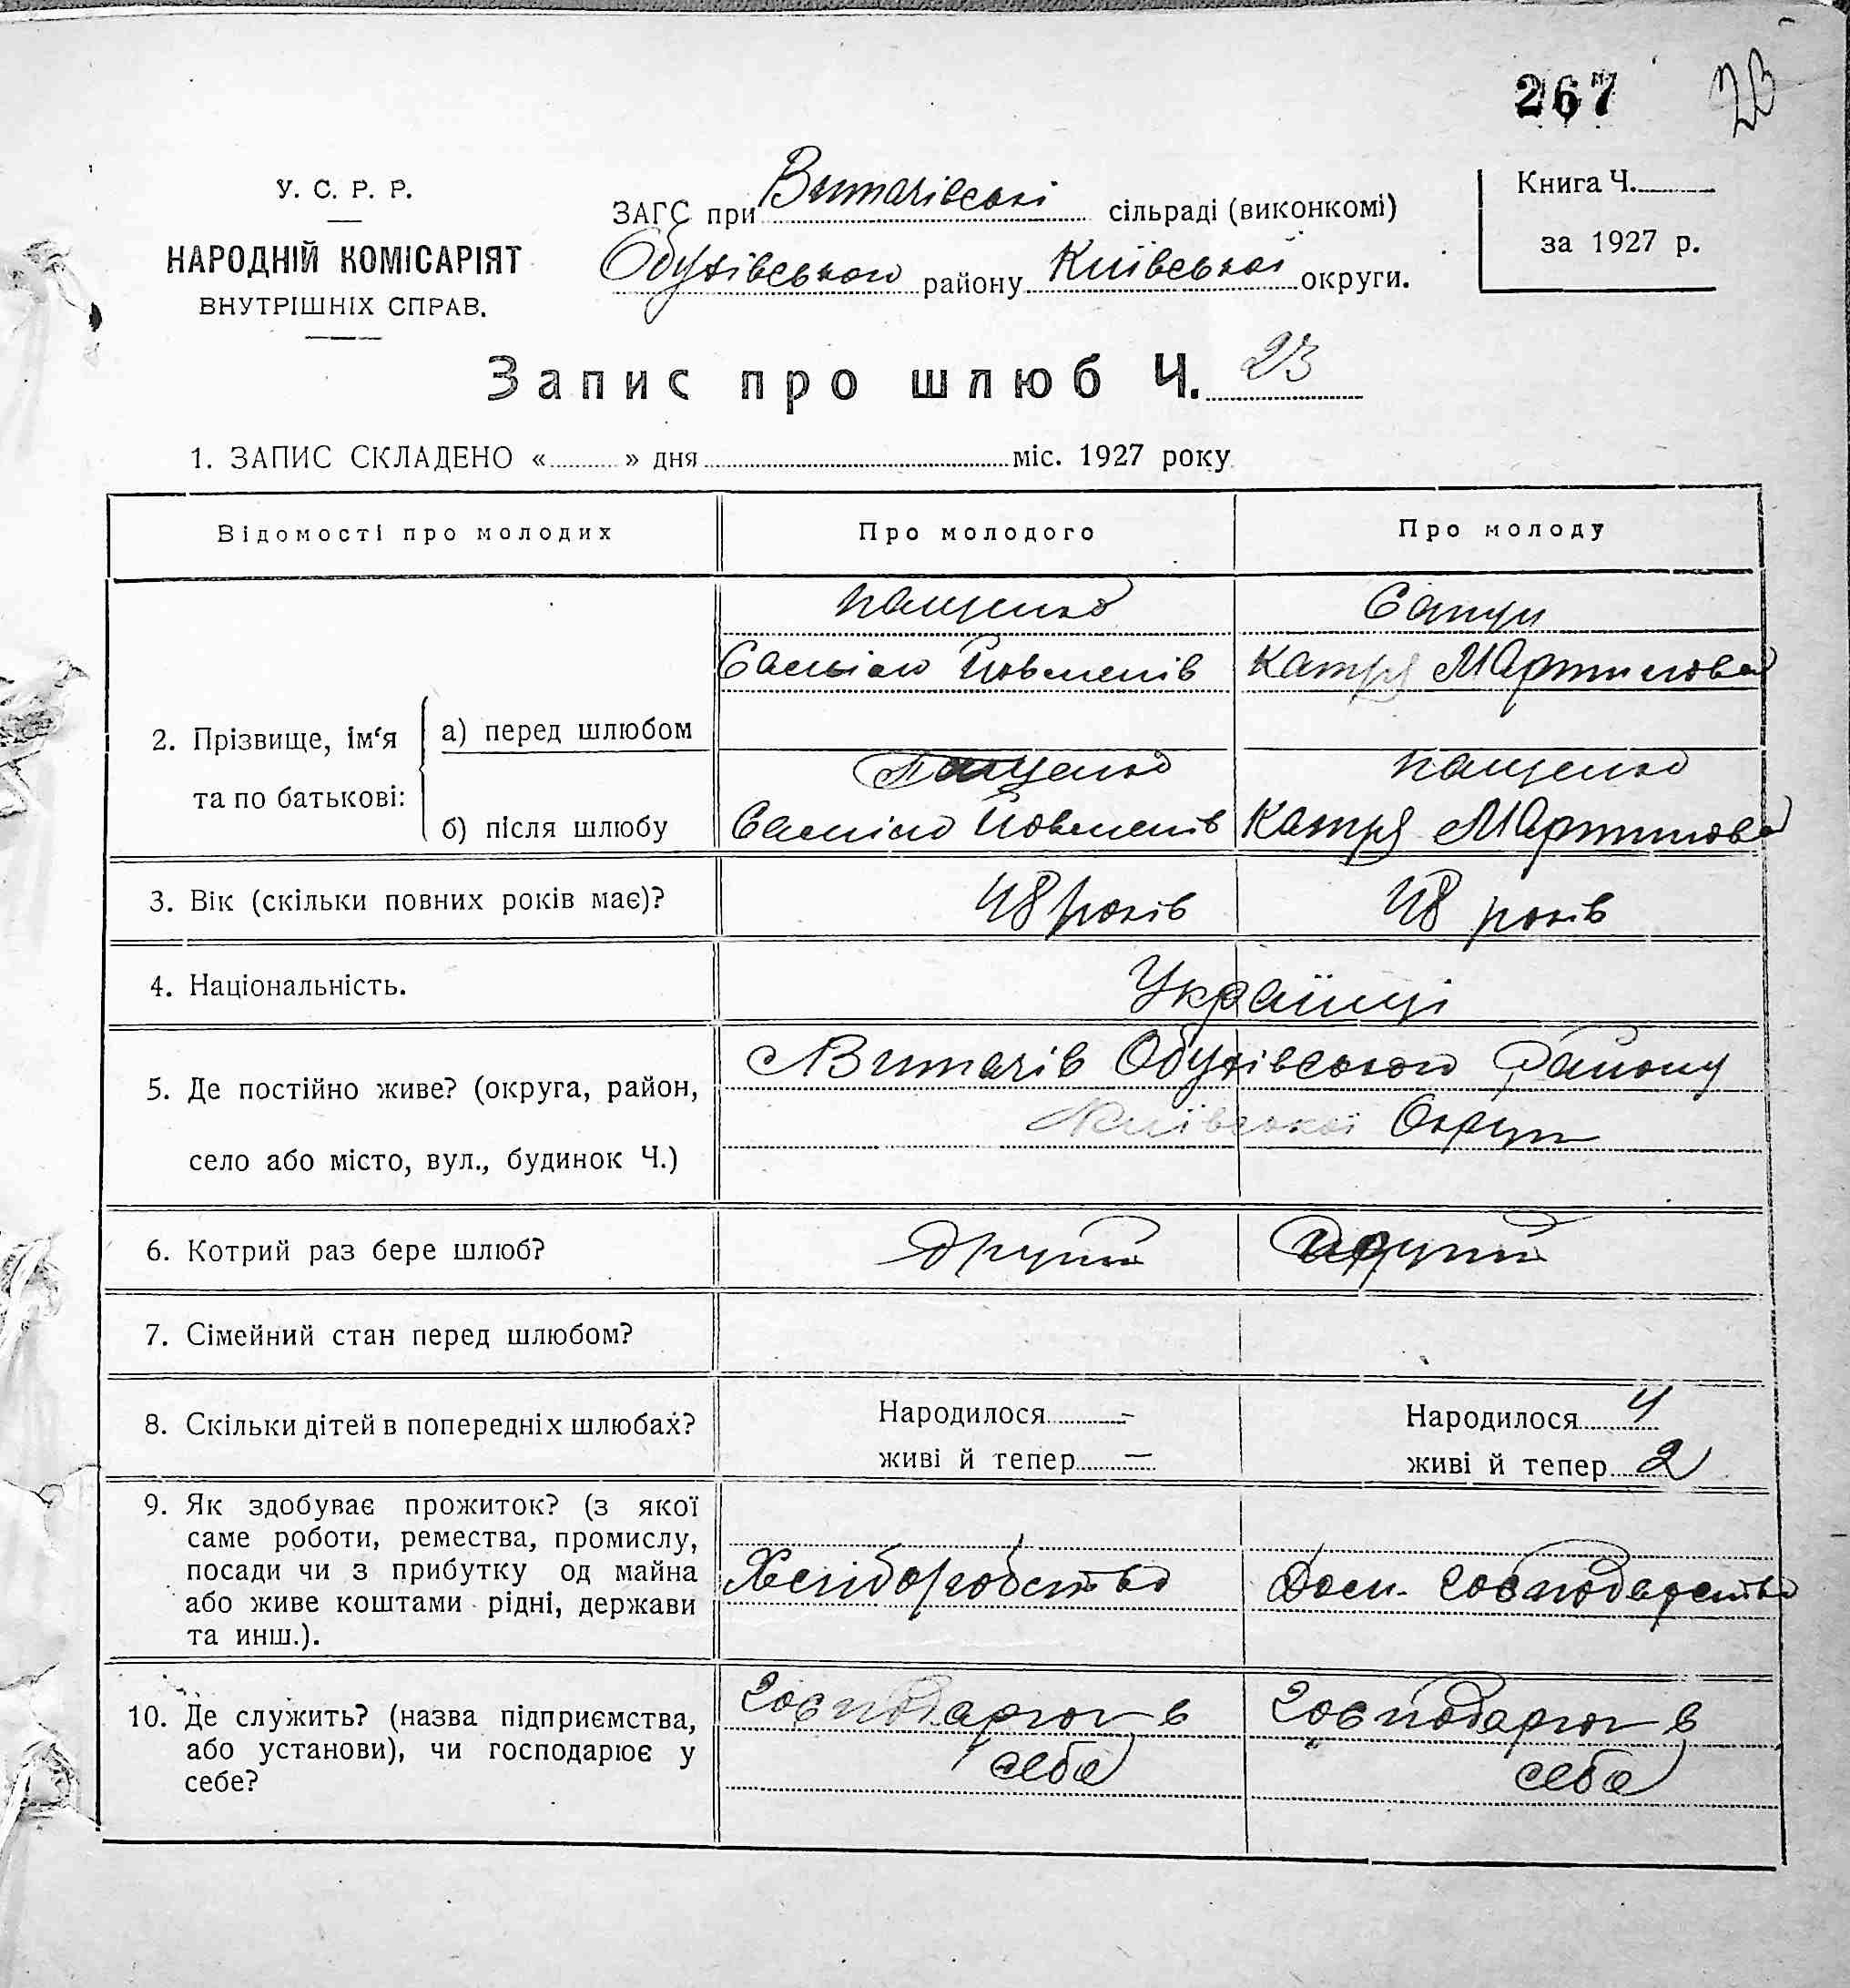 267 23
У. С. Р. Р.
НАРОДНІЙ КОМІСАРІЯТ
ВНУТРІШНІХ СПРАВ.
ЗАГС при Витачівські сільраді (виконкомі)
Обухівського району Київської округи.
Книга Ч.
за 1927 р.
Запис про шлюб Ч. 23
1. ЗАПИС СКЛАДЕНО « » дня міс. 1927 року
Відомості про молодих Про молодого Про молоду
2. Прізвище, ім‘я та по батькові:
а) перед шлюбом
Пащенко
Йовменів
Катря Мартинова
б) після шлюбу
Пащенко Пащенко
Йовменів Катря Мартинова
3. Вік (скільки повних років має)? 48 років 48 років
4. Національність. Українці
5. Де постійно живе? (округа, район,
село або місто, вул., будинок Ч.)
Витачів Обухівського Району
Київської Округи
6. Котрий раз бере шлюб? другий другий
7. Сімейний стан перед шлюбом?
8. Скільки дітей в попередніх шлюбах? Народилося - Народилося 4
живі й тепер — живі й тепер 2
9. Як здобуває прожиток? (з якої
саме роботи, ремества, промислу,
посади чи з прибутку од майна
або живе коштами рідні, держави
та инш.).
Хліборобство Дом. господарство
10. Де служить? (назва підприємства,
або установи), чи господарює у
себе?
господарює в господарює в
себе себе